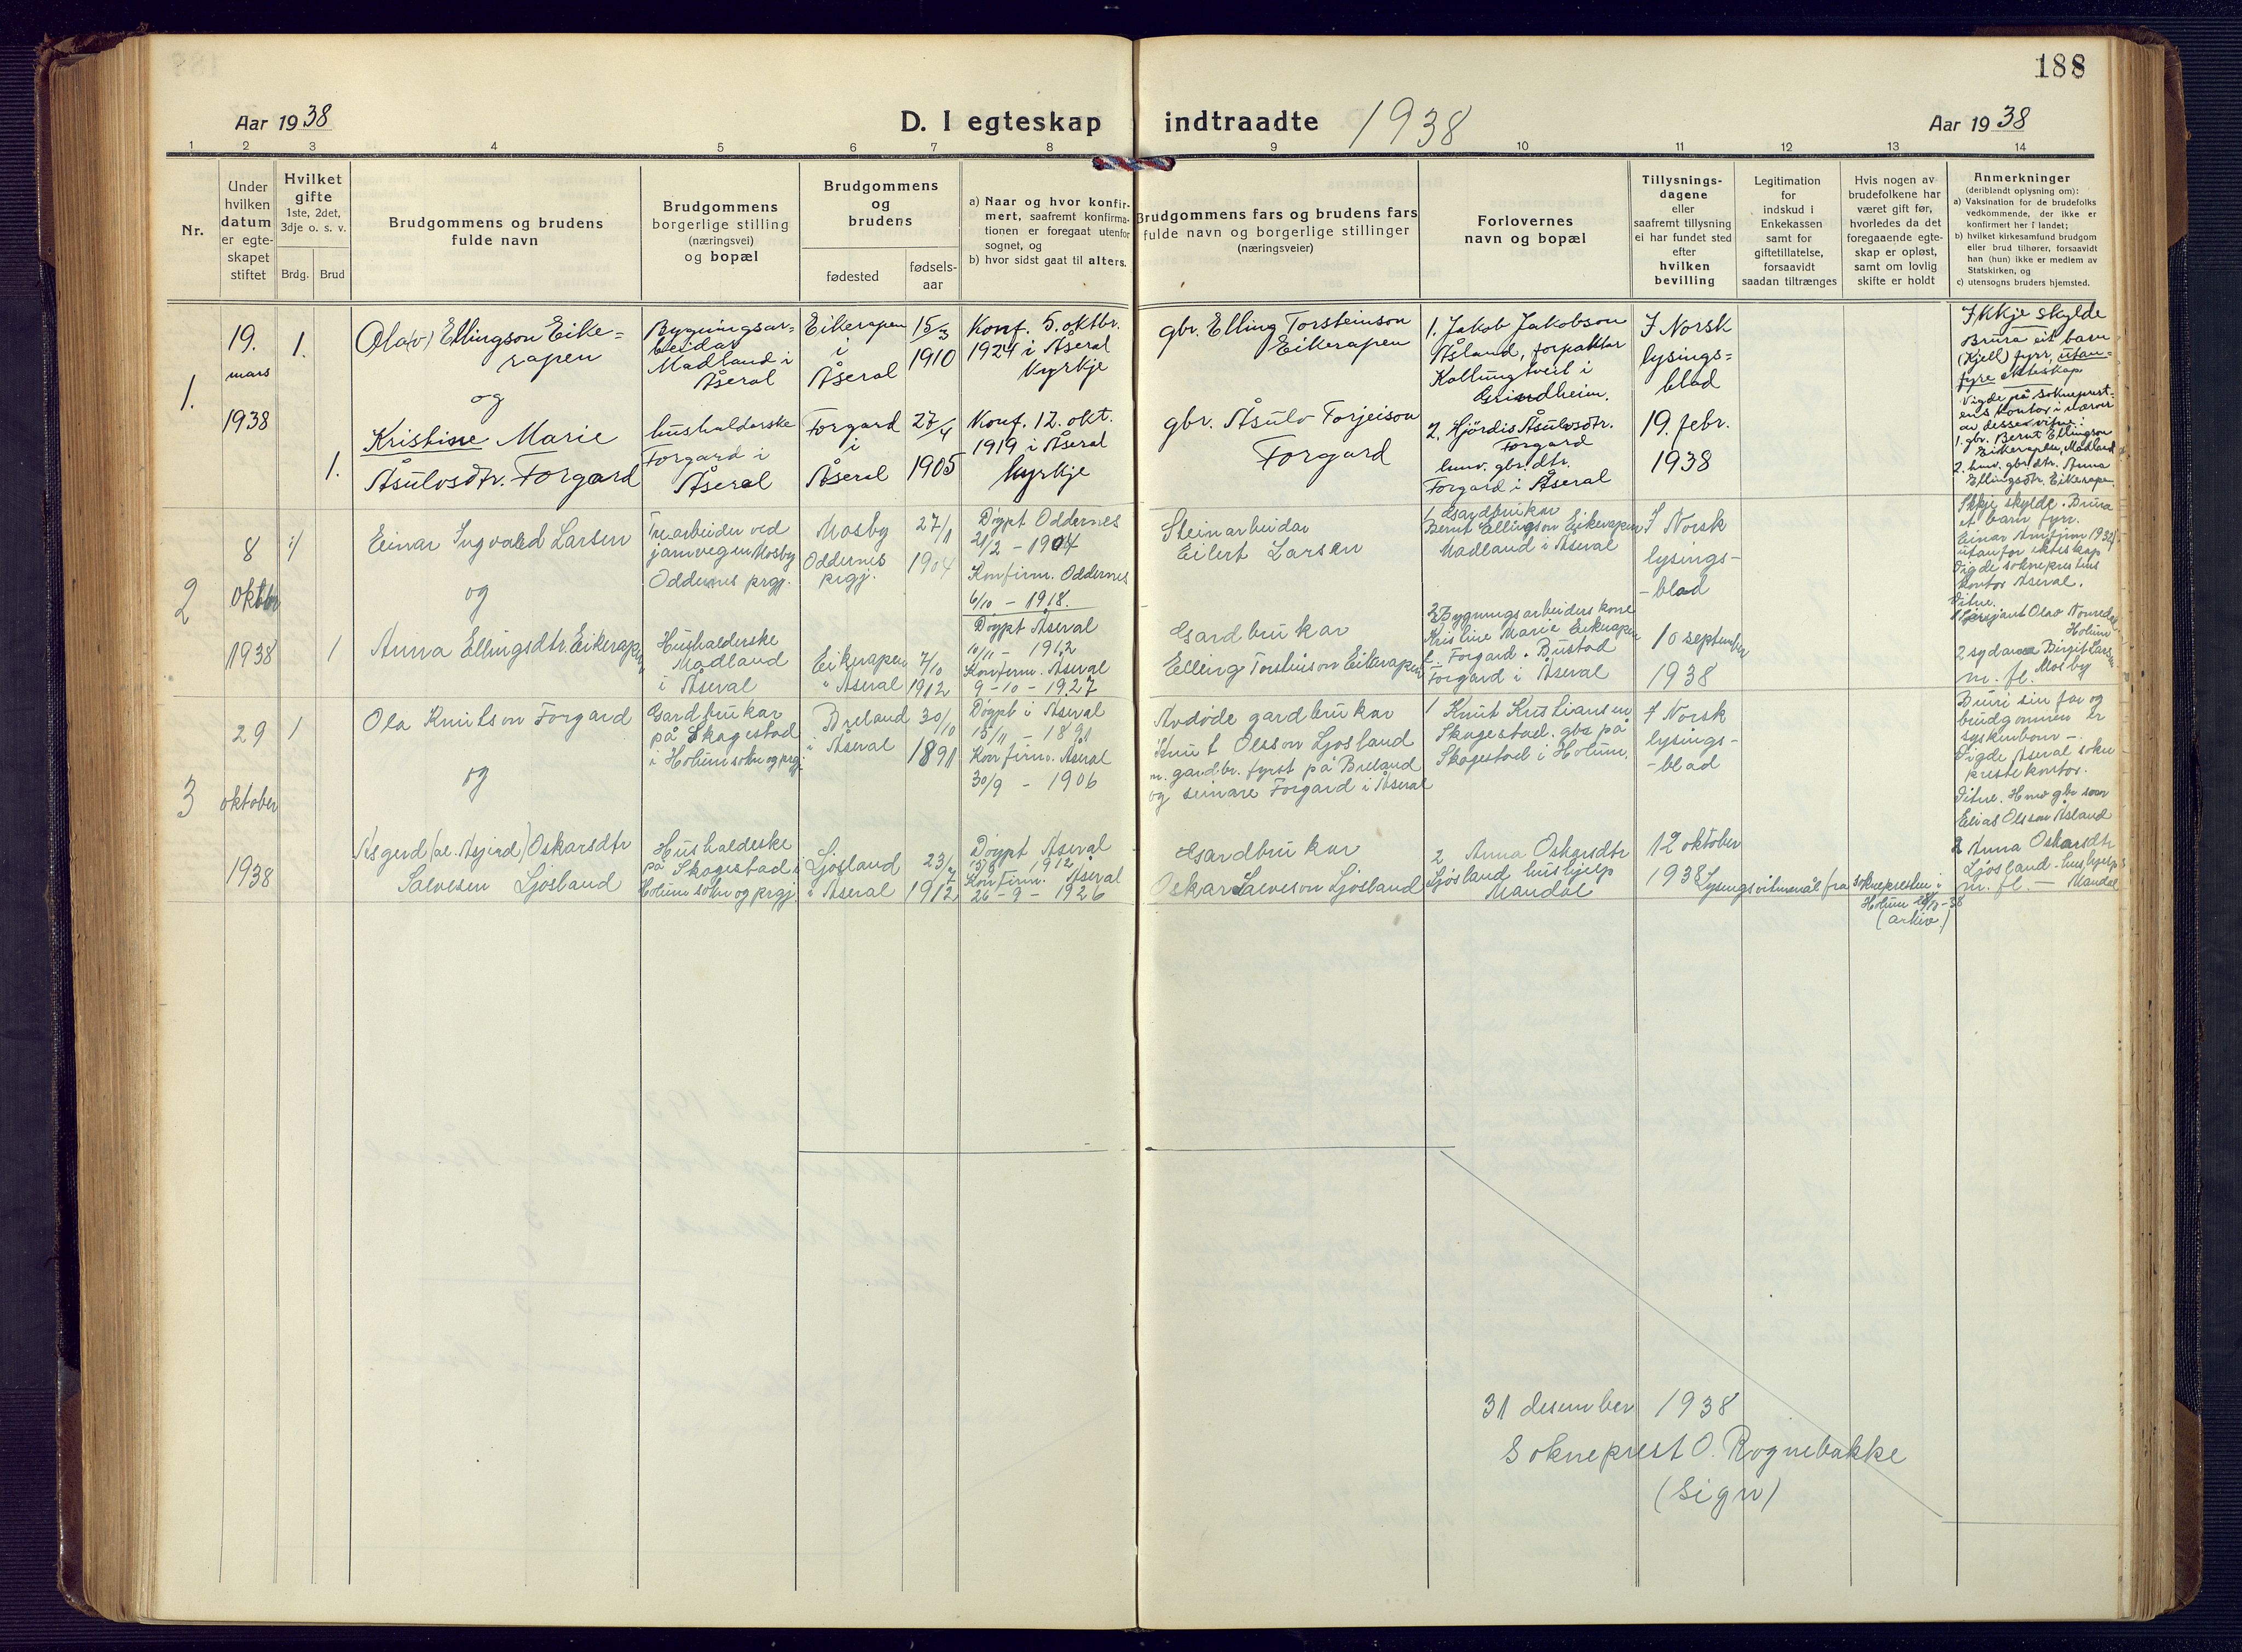 188
Aar 1938
D. I egteskap indtraadte 1938
Aar 1938
1 2 3 4 5 6 7 8 9 10 11 12 13 14
Nr.
Under
hvilken
datum
er egte-
skapet
stiftet
Hvilket
gifte
1ste, 2det,
3dje o. s. v.
Brdg. Brud
Brudgommens og brudens
fulde navn
Brudgommens
borgerlige stilling
(næringsvei)
og bopæl
Brudgommens
og
brudens
fødested
fødsels-
aar
a) Naar og hvor konfir-
mert, saafremt konfirma-
tionen er foregaat utenfor
sognet, og
b) hvor sidst gaat til alters.
Brudgommens fars og brudens fars
fulde navn og borgerlige stillinger
(næringsveier)
Forlovernes
navn og bopæl
Tillysnings-
dagene
eller
saafremt tillysning
ei har fundet sted
efter
hvilken
bevilling
Legitimation
for
indskud i
Enkekassen
samt for
giftetillatelse,
forsaavidt
saadan tiltrænges
Hvis nogen av
brudefolkene har
været gift før,
hvorledes da det
foregaaende egte-
skap er opløst,
samt om lovlig
skifte er holdt
Anmerkninger
(deriblandt oplysning om):
a) Vaksination for de brudefolks
vedkommende, der ikke er
konfirmert her i landet;
b) hvilket kirkesamfund brudgom
eller brud tilhører, forsaavidt
han (hun) ikke er medlem av
Statskirken, og
c) utensogns bruders hjemsted.
1.
19.
mars
1938
1.
1.
Ola(v) Ellingson Eike=
rapen
og
Kristine Marie
Åsulvsdtr. Forgard
Bygningsar=
beidar
Madland i
Åseral
hushalderske
Forgard i
Åseral
Eikerapen
i
Åseral
Forgard
i
Åseral
15/3
1910
27/4
1905
Konf. 5. oktbr.
1924 i Åseral
kyrkje
Konf. 12. okt.
1919 i Åseral
kyrkje
gbr. Elling Torsteinson
Eikerapen
gbr. Åsulv Torjeison
Forgard
1. Jakob Jakobson
Åsland, forpaktar
Kollungtveit i
Grindheim.
2. Hjördis Åsulvsdtr.
Forgard
huv. gbr. dtr.
Forgard i Åseral
I Norsk
lysings=
blad
19. febr.
1938
Ikkje skylde
Brura eit barn
(Kjell) fyrr, utan=
fyre ekteskap
Vigde på sokneprest-
ens kontor i nærver
av desse vitne:
1. gbr. Bernt Ellingson
Eikerapen, Madland
2. huv. gbr. dtr. Anna
Ellingsdtr. Eikerapen.
2
8
oktbr
1938
1
1
Einar Ingvald Larsen
og
Anna Ellingsdtr. Eikerapen
Trearbeider ved
jarnvegen Mosby
Oddernes prgj.
Husholderske
Madland
i Åseral
Mosby
Oddernes
prgj.
Eikerapen
" Åseral
27/1
1904
7/10
1912
Døypt Oddernes
21/2 - 1904
Konfirm. Oddernes
6/10 - 1918.
Døypt Åseral
10/11 - 1912
Konfirm. Åseral
9 - 10 - 1927
Steinarbeidar
Eilert Larsen
Gardbrukar
Elling Torsteinson Eikerapen
1 Gardbrukar
Bernt Ellingson Eikerapen
Madland i Åseral
2 Bygningsarbeiders kone
Kristine Marie Eikerapen
f. Forgard. Bustad
Forgard i Åseral
I Norsk
lysings-
-blad
10 september
1938
Ikkje skylde. Brura
et barn fyrr.
utanfor ekteskap
Vigde sokneprestens
kontor Åseral.
Vitne.
Holum
2 sydame Birgit Larsen
m. fl. Mosby
3
29
oktober
1938
1
Ola Knutson Forgard
og
Asgerd (al. Asjerd) Oskarsdtr
Salvesen Ljosland
Gardbrukar
på Skagestad
i Holum sokn og prgj.
Hushaldeske
på Skagestad i
Holum sokn og prgj.
Breland
i Åseral
Ljosland
i Åseral
30/10
1891
23/7
1912
Døypt i Åseral
15/11 - 1891
Konfirm. Åseral
30/9 - 1906
Døypt Åseral
1912
Konfirm. Åseral
26 - 9 - 1926
Avdøde gardbrukar
Knut Olsson Ljosland
m. gardbr. fyrst på Breland
og seinare Forgard i Åseral
Gardbrukar
Oskar Salveson Ljosland
1 Knut Kristiansen
Skagestad. gbr på
Skagestad i Holum.
2 Anna Oskarsdtr
Ljosland hushjelp
Mandal
I Norsk
lysings-
-blad
12 oktober
1938
Lysingsvitnemål fra soknepresten i
Holum 28/10 - 38
(arkiv.)
Bruri sin far og
brudgomen er
syskenborn -.
Vigde Åseral sokne
prestekontor.
Vitne.
Elias Olsson Åsland
2 Anna Oskarsdtr
Ljosland. hushjelp
m. fl. - Mandal
31 desember 1938
Sokneprest O. Rognebakke
(sign)